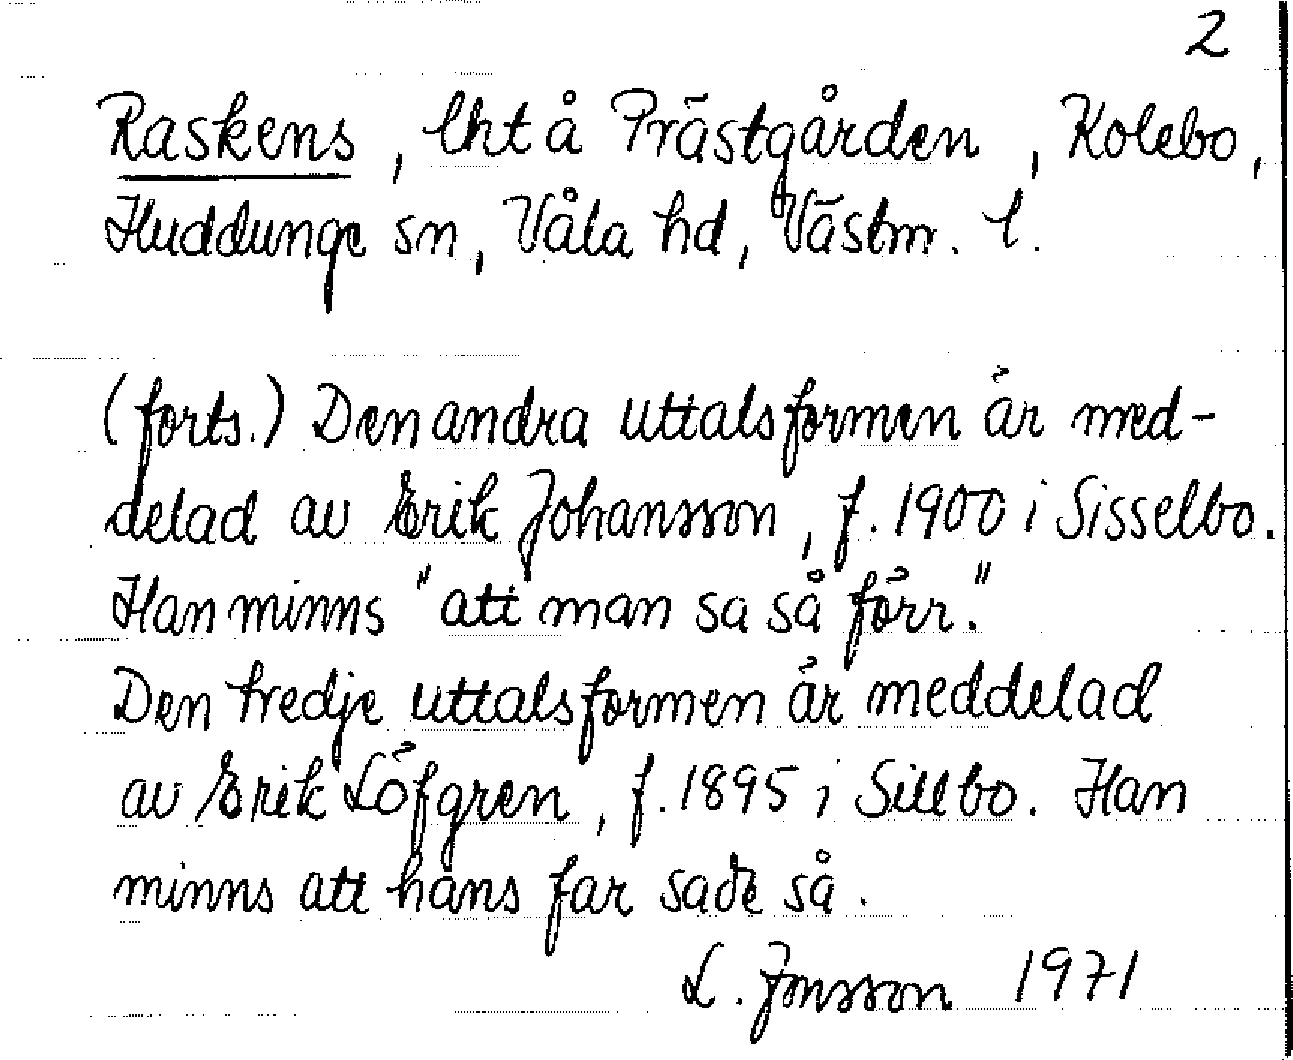 2
Raskens, lht å Prästgården, Kolebo,
Huddunge sn, Våla hd, Västm. l.
(forts.) Den andra uttalsformen är med-
delad av Erik Johansson, f. 1900 i Sisselbo.
Han minns "att man sa så förr."
Den tredje uttalsformen är meddelad
av Erik Löfgren, f. 1895 i Sillbo. Han
minns att hans far sade så.
L. Jonsson 1971